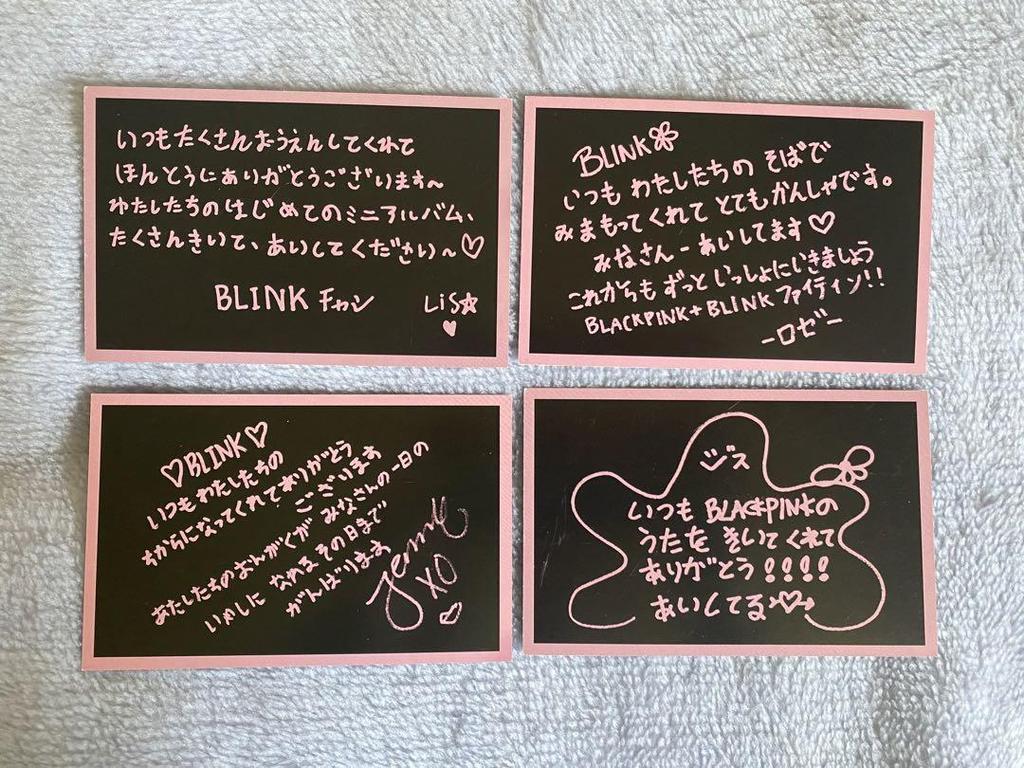 いつもたくさんおうえんしてくれて
ほんとうにありがとうございます～
わたしたちのはじめてのミニアルバム、
たくさんきいて、あいしてください～♡
BLINK チャン
LiS☆
BLINK
いつも わたしたちの そばで
みまもってくれて とても かんしゃです。
みなさんーあいしてます♡
これからも ずっと いっしょに いきましょう
BLACKPINK+BLINK ファイティン!!
-ロゼ-
♡BLINK♡
いつも わたしたちの
ちからになってくれてありがとう
ございます
あたしたちのおんがくが みなさんの一日の
いやしに なれる その日まで
がんばります
Jennie
XO
ジス
いつも BLACKPINKの
うたを きいて くれて
ありがとう!!!!
あいしてる♡